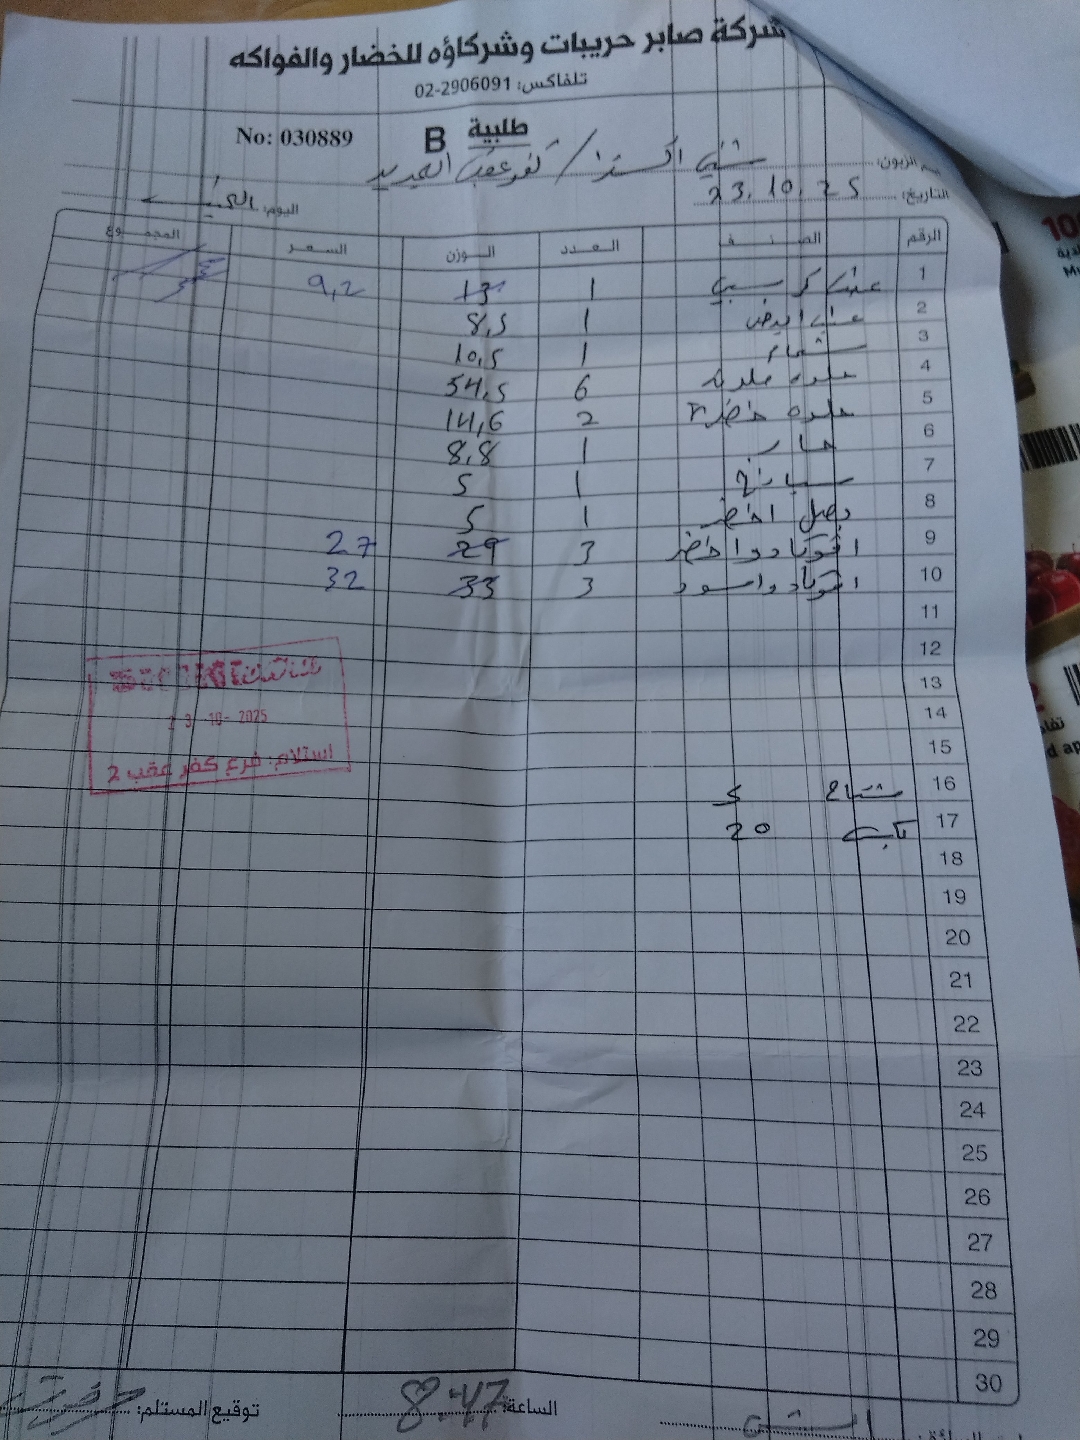 شركة صابر حريبات وشركاؤه للخضار والفواكه
تلفاكس: 02-2906091
طلبية B No: 030889
الزبون: كفر عقب الجديد
التاريخ: 23.10.25 اليوم:
الرقم الصنف العدد الوزن السعر المجموع
1 عنب كرسبي 1 13 9,2
2 عنب ابيض 1 8,5
3 شمام 1 10,5
4 6 54,5
5 2 14,6
6 خيار 1 8,8
7 سبانخ 1 5
8 بصل اخضر 1 5
9 افوكادو اخضر 3 29 27
10 افوكادو اسود 3 33 32
11
12
13
14
15
16 5
17 20
18
19
20
21
22
23
24
25
26
27
28
29
30
10-2025
استلام: فرع كفر عقب 2
الساعة: 8:47 توقيع المستلم: